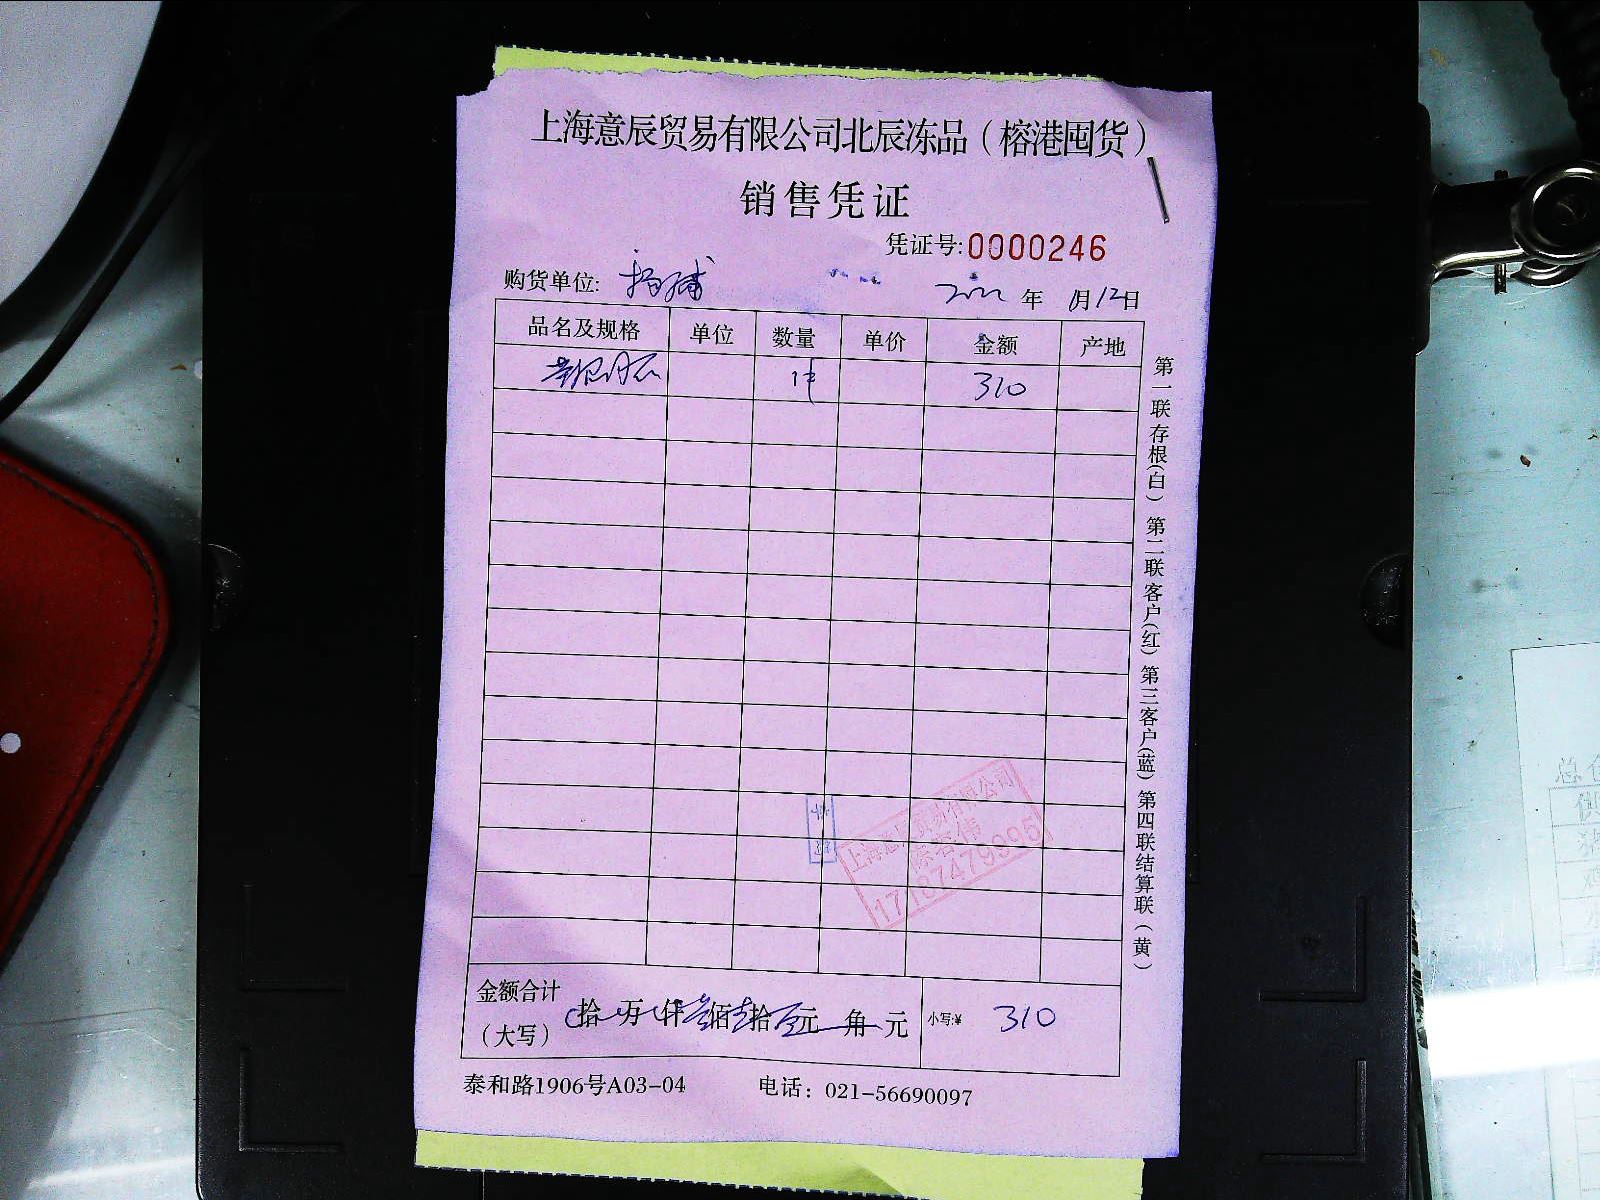 上海意辰贸易有限公司北辰冻品（榕港囤货）
销售凭证
凭证号:0000246
购货单位: 杨浦 2022 年 月12日
品名及规格 单位 数量 单价 金额 产地
1件 310
金额合计（大写） 拾 万 仟叁佰壹拾零元 角 元 小写:¥ 310
泰和路1906号A03-04 电话：021-56690097
第一联存根(白) 第二联客户(红) 第三客户(蓝) 第四联结算联(黄)
上海意辰贸易有限公司